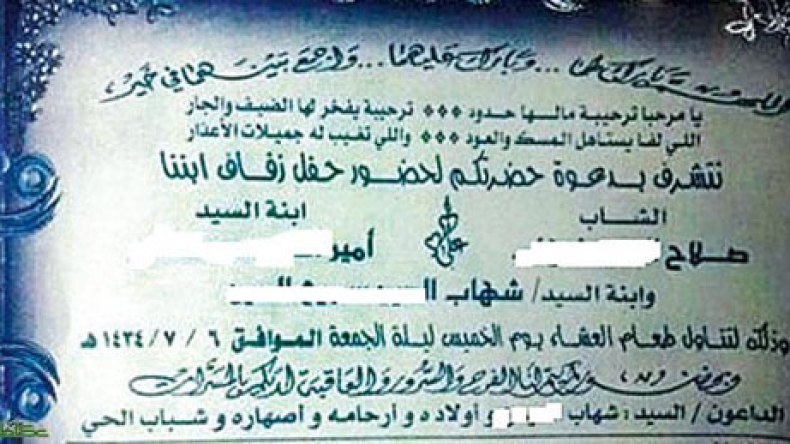 اللهم بارك لهما ... وبارك عليهما ... واجمع بينهما في خير
يا مرحبا ترحيبة مالها حدود *** ترحيبة يفخر لها الضيف والجار
اللي لفا يستاهل المسك والعود *** واللي تغيب له جميلات الأعذار
نتشرف بدعوة حضرتكم لحضور حفل زفاف ابننا
الشاب ابنة السيد
صلاح أمير
وابنة السيد/ شهاب
وذلك لتناول طعام العشاء يوم الخميس ليلة الجمعة الموافق ٦ / ٧ / ١٤٣٤ هـ
وبحضوركم يتم لنا الفرح والسرور والعاقبة لديكم بالمسرات
الداعون / السيد : شهاب و أولاده و أرحامه و أصهاره و شباب الحي